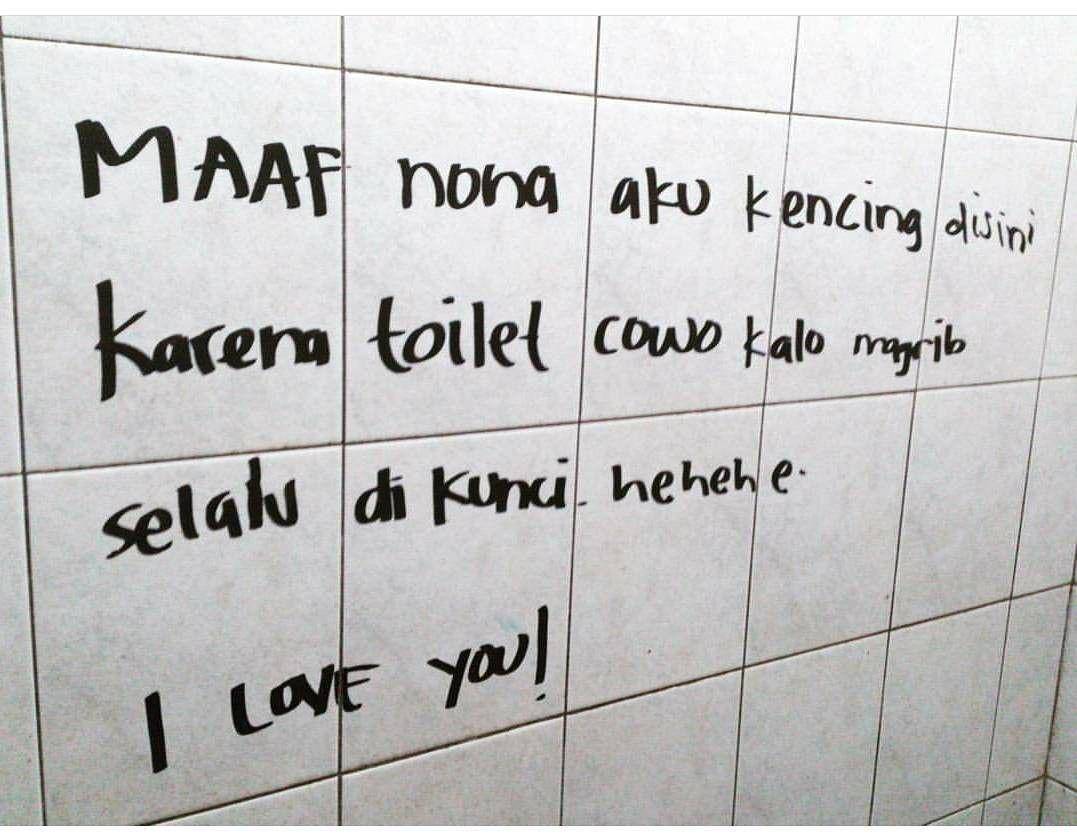 MAAF nona aku kencing disini
karena toilet cowo kalo magrib
selalu di kunci. hehehe.
I LOVE YOU!